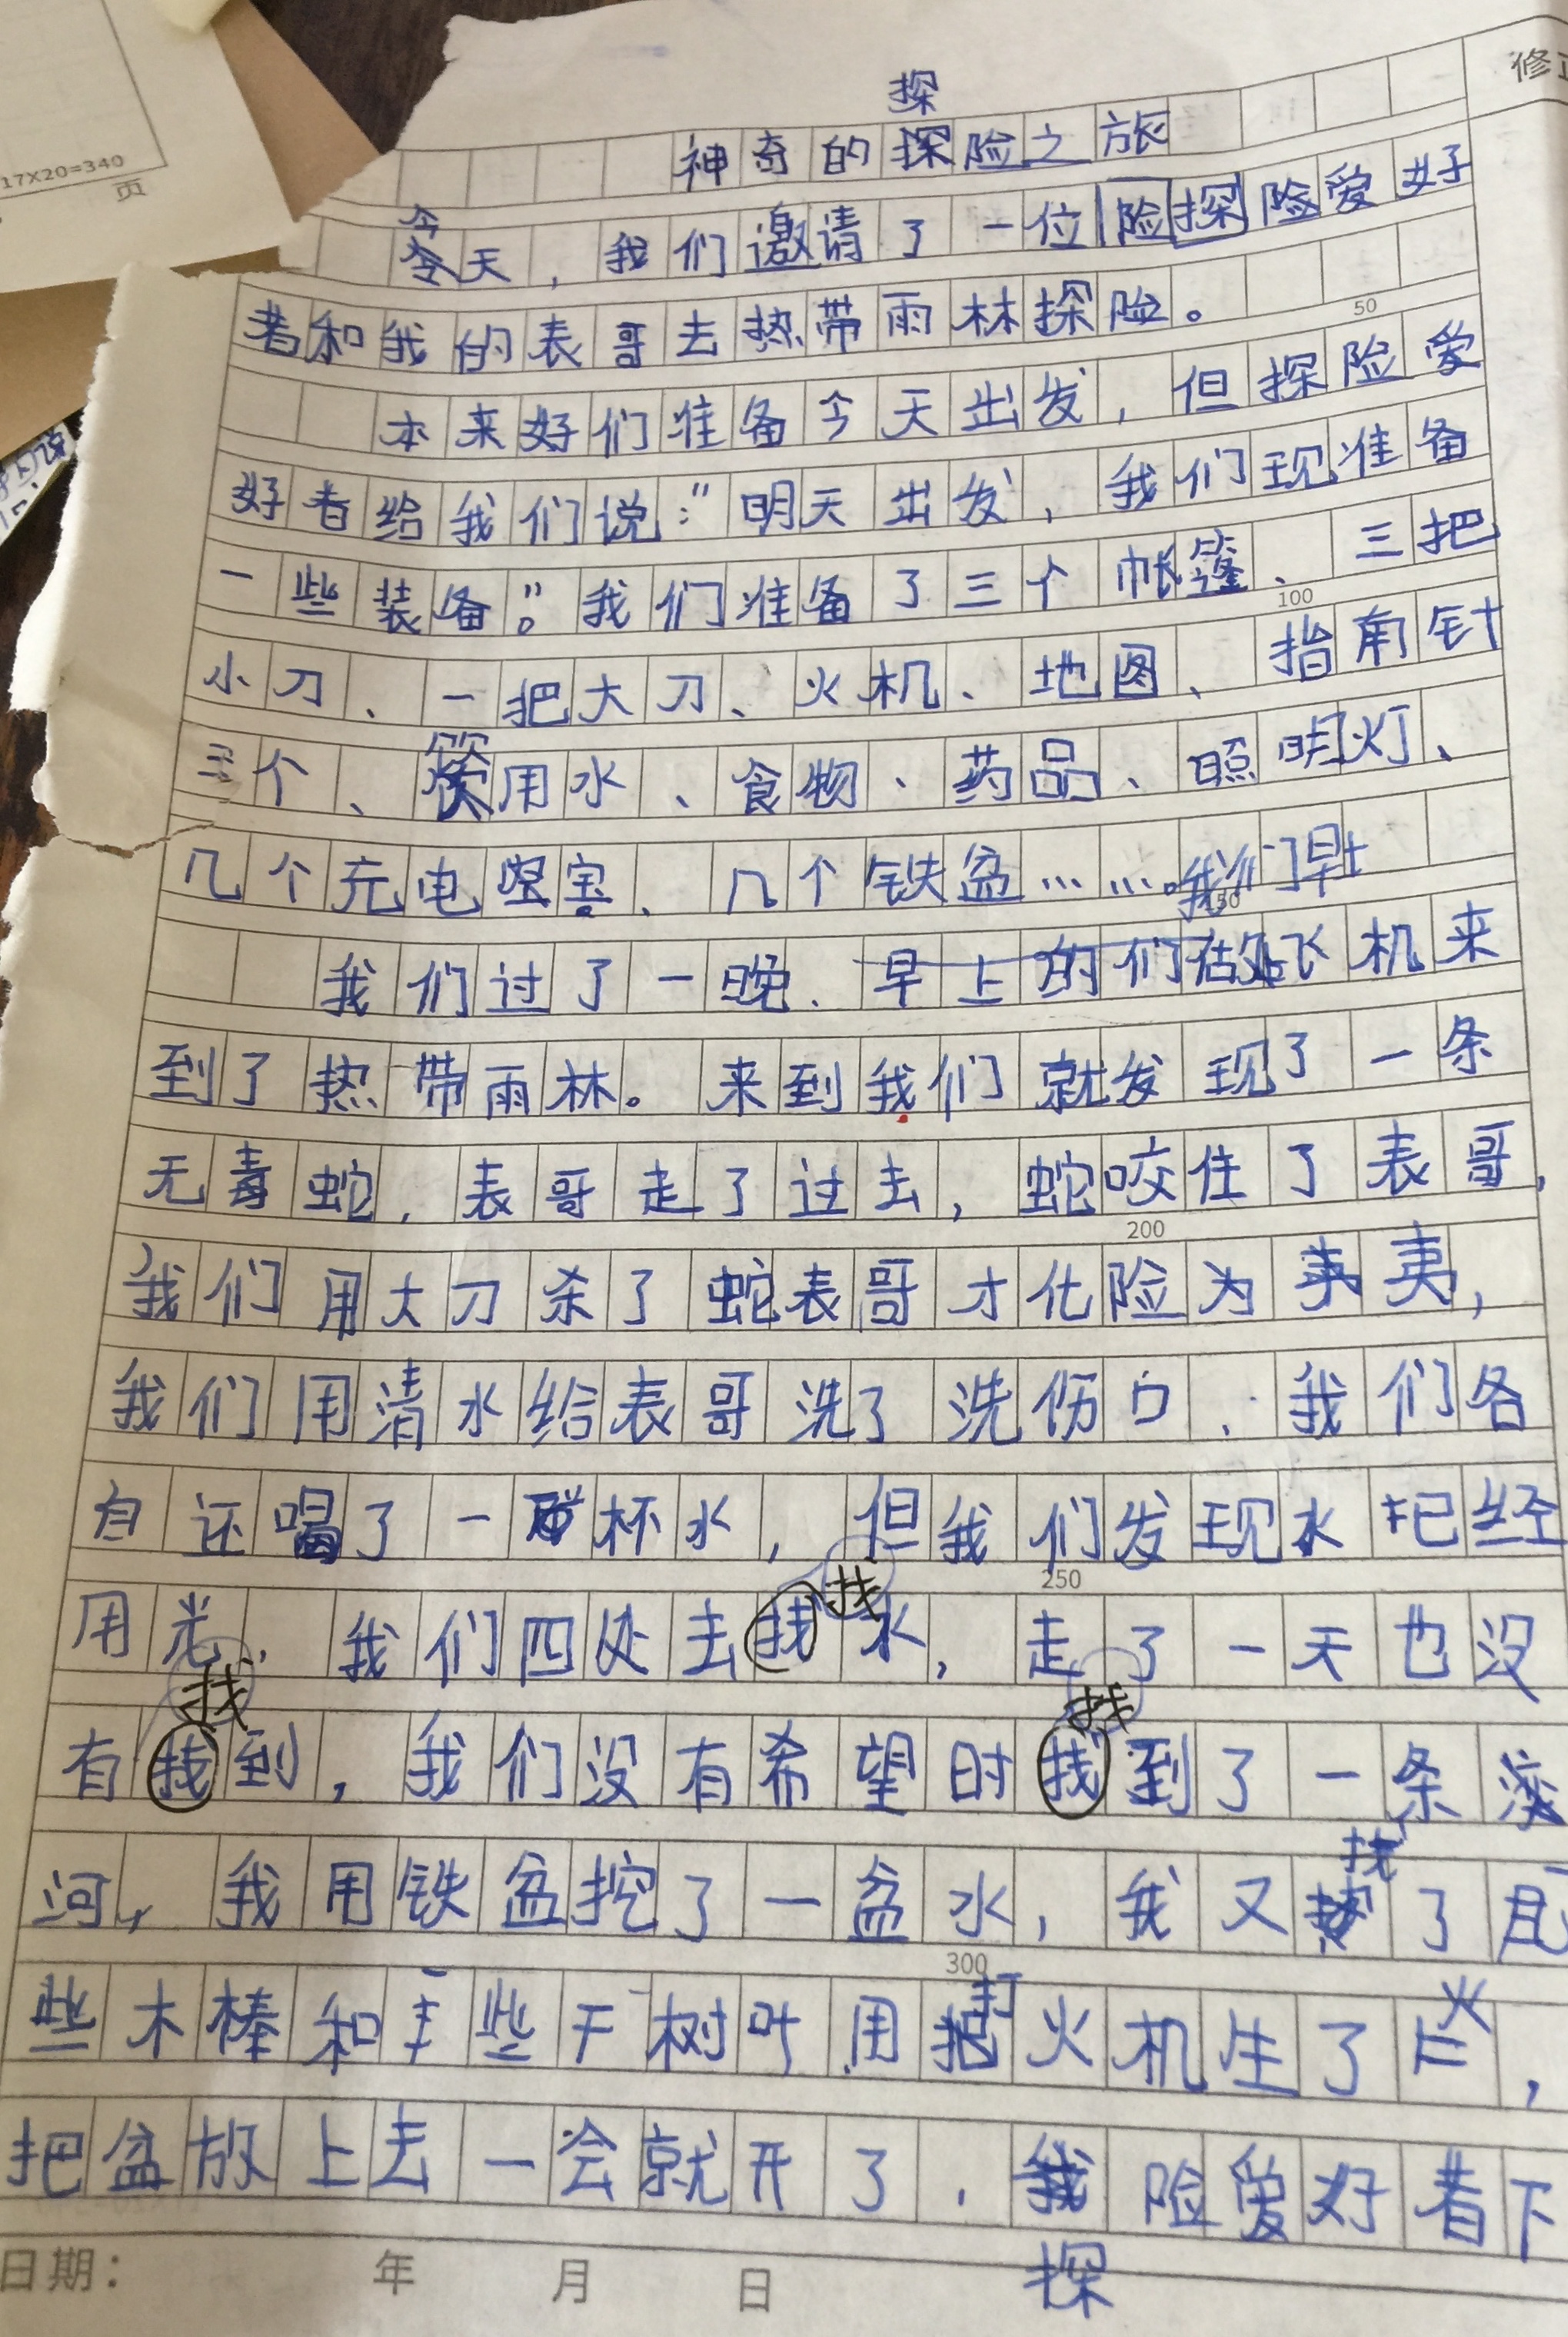 17X20=340
页
修正
探
神奇的探险之旅
今
今天，我们邀请了一位险探险爱好
者和我的表哥去热带雨林探险。
50
本来好们准备今天出发，但探险爱
好者给我们说："明天出发，我们现准备
一些装备。"我们准备了三个帐篷、三把
100
小刀、一把大刀、火机、地图、指南针
三个、饮用水、食物、药品、照明灯、
几个充电宝、几个铁盆……我们早上
150
我们过了一晚．早上的们飞机来
到了热带雨林。来到我们就发现了一条
无毒蛇．表哥走了过去，蛇咬住了表哥，
200
我们用大刀杀了蛇表哥才化险为夷，
我们用清水给表哥洗了洗伤口．我们各
自还喝了一杯水，但我们发现水把经
250
找
用光．我们四处去找水，走了一天也没
找 找
有找到，我们没有希望时找到了一条
找
河，我用铁盆挖了一盆水，我又了
300
打 火
些木棒和些干树叶用火机生了，
把盆放上去一会就开了．险爱好者下
探
日期： 年 月 日